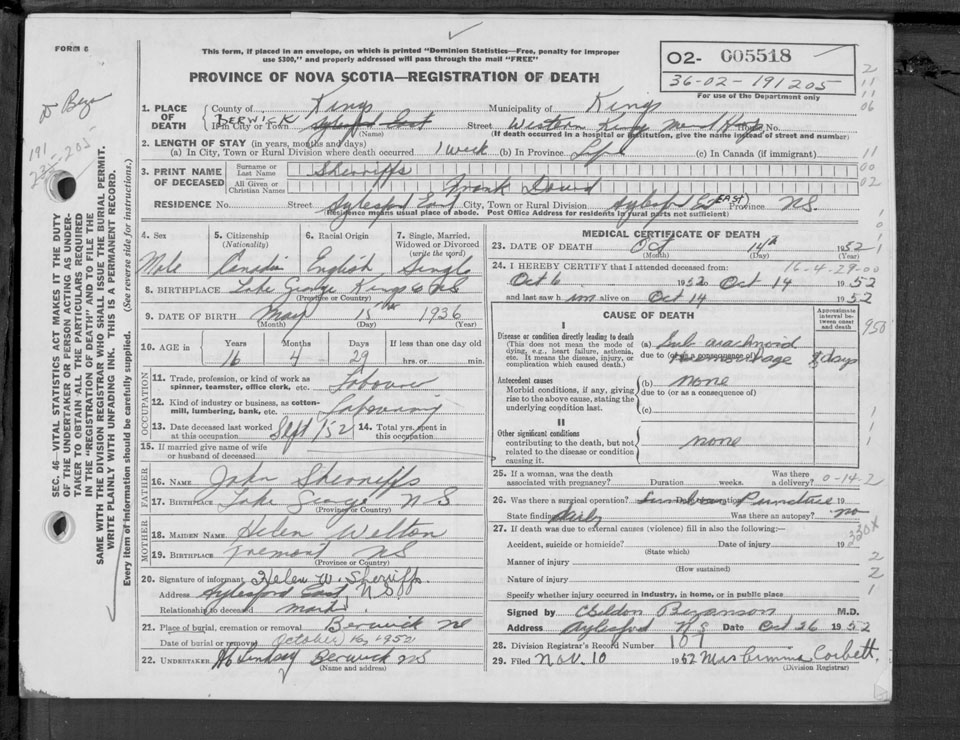 FORM 6
This form, if placed in an envelope, on which is printed "Dominion Statistics—Free, penalty for improper
use $300," and properly addressed will pass through the mail "FREE"
PROVINCE OF NOVA SCOTIA—REGISTRATION OF DEATH
02- 005518
36-02-191205
For use of the Department only
SEC. 46—VITAL STATISTICS ACT MAKES IT THE DUTY
OF THE UNDERTAKER OR PERSON ACTING AS UNDER-
TAKER TO OBTAIN ALL THE PARTICULARS REQUIRED
IN THE "REGISTRATION OF DEATH" AND TO FILE THE
SAME WITH THE DIVISION REGISTRAR WHO SHALL ISSUE THE BURIAL PERMIT.
WRITE PLAINLY WITH UNFADING INK. THIS IS A PERMANENT RECORD.
Every item of information should be carefully supplied. (See reverse side for instructions.)
1. PLACE OF DEATH County of Kings Municipality of Kings
If in City or Town BERWICK Aylesford East (Name) Street Western Kings Mem Hosp House No.
(If death occurred in a hospital or institution, give the name instead of street and number)
2. LENGTH OF STAY (in years, months and days)
(a) In City, Town or Rural Division where death occurred 1 week (b) In Province Life (c) In Canada (if immigrant)
3. PRINT NAME OF DECEASED Surname or Last Name Sherriffs
All Given or Christian Names Frank David
RESIDENCE No. Street Aylesford East City, Town or Rural Division Aylesford EAST Province N.S.
(Residence means usual place of abode. Post Office Address for residents in rural parts not sufficient)
4. Sex Male
5. Citizenship (Nationality) Canadian
6. Racial Origin English
7. Single, Married, Widowed or Divorced (write the word) Single
8. BIRTHPLACE Lake George Kings Co NS
(Province or Country)
9. DATE OF BIRTH May 15th 1936
(Month) (Day) (Year)
10. AGE in Years 16 Months 4 Days 29 If less than one day old hrs. or min.
OCCUPATION
11. Trade, profession, or kind of work as spinner, teamster, office clerk, etc. Labourer
12. Kind of industry or business, as cotton-mill, lumbering, bank, etc. Labouring
13. Date deceased last worked at this occupation Sept/52 14. Total yrs. spent in this occupation
15. If married give name of wife or husband of deceased
FATHER
16. Name John Sherriffs
17. Birthplace Lake George N S
(Province or Country)
MOTHER
18. Maiden Name Helen Welton
19. Birthplace Tremont NS
(Province or Country)
20. Signature of informant Helen W. Sherriffs
Address Aylesford East, N.S.
Relationship to deceased
21. Place of burial, cremation or removal Berwick NS
Date of burial or removal October 16, 1952
22. Undertaker Lindsay Berwick NS
(Name and address)
MEDICAL CERTIFICATE OF DEATH
23. DATE OF DEATH Oct 14th 1952
(Month) (Day) (Year)
24. I HEREBY CERTIFY that I attended deceased from:
16-4-29-00
Oct 6 1952 to Oct 14 1952
and last saw him alive on Oct 14 1952
CAUSE OF DEATH
Approximate interval between onset and death
I
Disease or condition directly leading to death (a) Sub arachnoid
(This does not mean the mode of dying, e.g., heart failure, asthenia, etc. It means the disease, injury, or complication which caused death.)
due to (or as a consequence of) Hemorrhage 8 days
Antecedent causes (b) none
Morbid conditions, if any, giving rise to the above cause, stating the underlying condition last.
due to (or as a consequence of)
(c)
II
Other significant conditions
contributing to the death, but not related to the disease or condition causing it. none
25. If a woman, was the death associated with pregnancy? Duration weeks. Was there a delivery? 0-14-2
26. Was there a surgical operation? Lumbar Puncture 19
State findings Was there an autopsy? no
27. If death was due to external causes (violence) fill in also the following:—
Accident, suicide or homicide? Date of injury 19
(State which)
Manner of injury
(How sustained)
Nature of injury
Specify whether injury occurred in industry, in home, or in public place
Signed by M.D.
Address Aylesford N S Date Oct 26 1952
28. Division Registrar's Record Number 101
29. Filed Nov. 10 1952 Mrs Corbett
(Division Registrar)